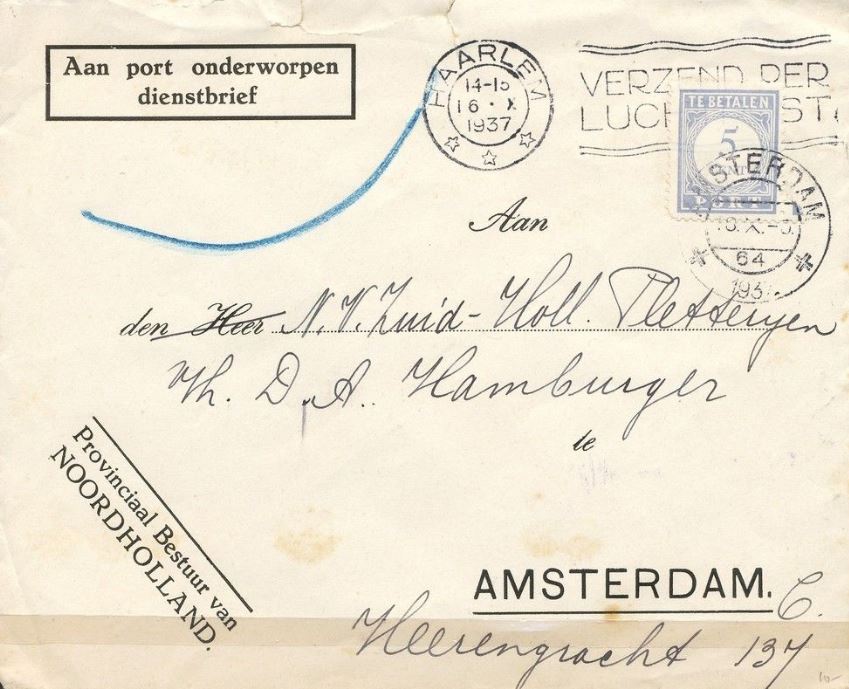 Aan port onderworpen
dienstbrief
HAARLEM
14-15
16 · X
1937
VERZEND PER
LUCH ST
TE BETALEN
5
PORT
AMSTERDAM
16.X.-3.
64
193
Aan
den Heer N.V. Zuid-Holl. Pletteryen
Vh. D. A. Hamburger
te
Provinciaal Bestuur van
NOORDHOLLAND.
AMSTERDAM. C.
Heerengracht 137
10-